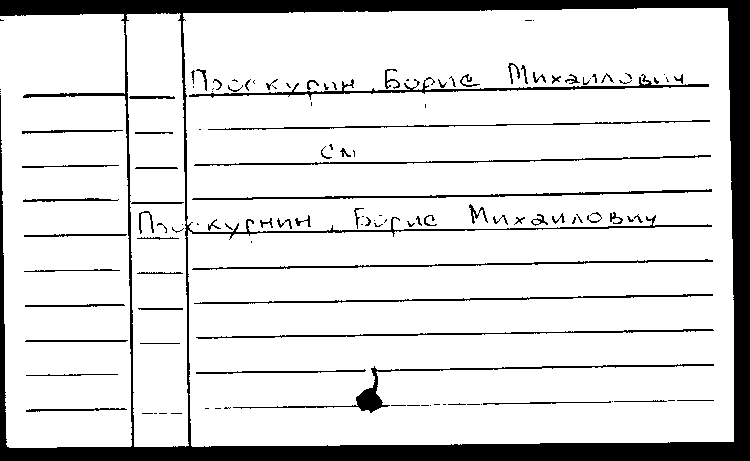 Проскурин, Борис Михайлович
см
Проскурнин, Борис Михайлович